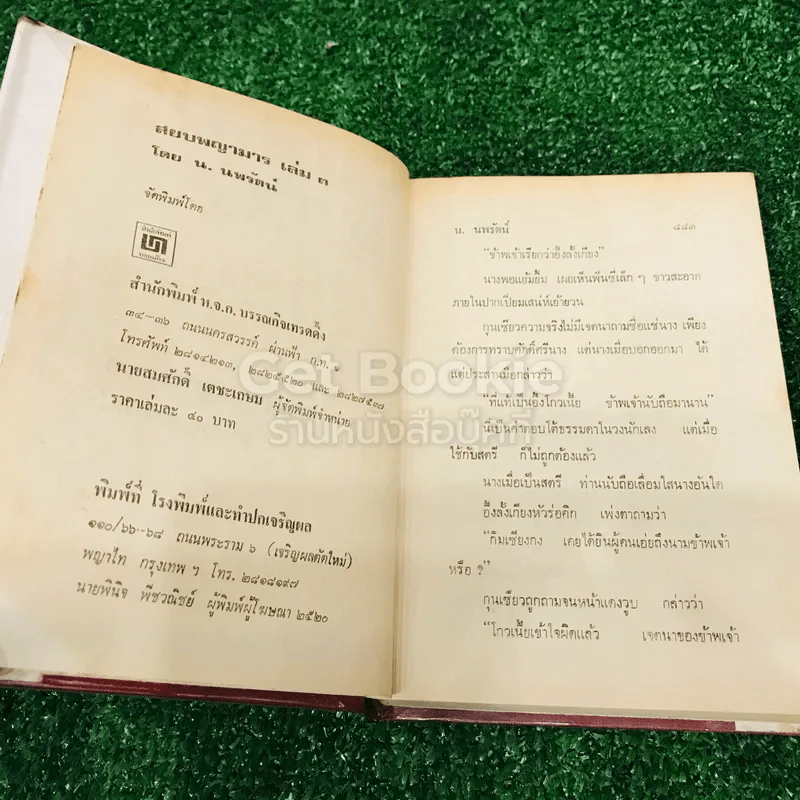 สยบพญามาร เล่ม ๓
โดย น. นพรัตน์
จัดพิมพ์โดย
สำนักพิมพ์
บรรณกิจ
สำนักพิมพ์ ห.จ.ก. บรรณกิจเทรดดิ้ง
๓๔—๓๖ ถนนนครสวรรค์ ผ่านฟ้า ก.ท. ๑
โทรศัพท์ ๒๘๑๔๒๑๓, ๒๘๒๕๕๒๐ และ ๒๘๒๗๕๓๗
นายสมศักดิ์ เตชะเกษม ผู้จัดพิมพ์จำหน่าย
ราคาเล่มละ ๔๐ บาท
พิมพ์ที่ โรงพิมพ์และทำปกเจริญผล
๑๑๐/๖๖—๖๘ ถนนพระราม ๖ (เจริญผลตัดใหม่)
พญาไท กรุงเทพ ฯ โทร. ๒๘๑๘๑๙๗
นายพินิจ พืชวณิชย์ ผู้พิมพ์ผู้โฆษณา ๒๕๒๐
น. นพรัตน์ ๘๘๓
“ข้าพเจ้าเรียกว่าอั้งลั้งเกียง”
นางพอแย้มยิ้ม เผยเห็นฟันซี่เล็ก ๆ ขาวสะอาด
ภายในปากเปี่ยมเสน่ห์เย้ายวน
กุนเซียวความจริงไม่มีเจตนาถามชื่อแซ่นาง เพียง
ต้องการทราบศักดิ์ศรีนาง แต่นางเมื่อบอกออกมา ได้
แต่ประสานมือกล่าวว่า
“ที่แท้เป็นอั้งโกวเนี้ย ข้าพเจ้านับถือมานาน”
นี่เป็นคำตอบโต้ธรรมดาในวงนักเลง แต่เมื่อ
ใช้กับสตรี ก็ไม่ถูกต้องแล้ว
นางเมื่อเป็นสตรี ท่านนับถือเลื่อมใสนางอันใด
อั้งลั้งเกียงหัวร่อคิก เพ่งตาถามว่า
“กิมเซียงกง เคยได้ยินผู้คนเอ่ยถึงนามข้าพเจ้า
หรือ ?”
กุนเซียวถูกถามจนหน้าแดงวูบ กล่าวว่า
“โกวเนี้ยเข้าใจผิดแล้ว เจตนาของข้าพเจ้า
Get Bookie
ร้านหนังสือบุ๊คกี้